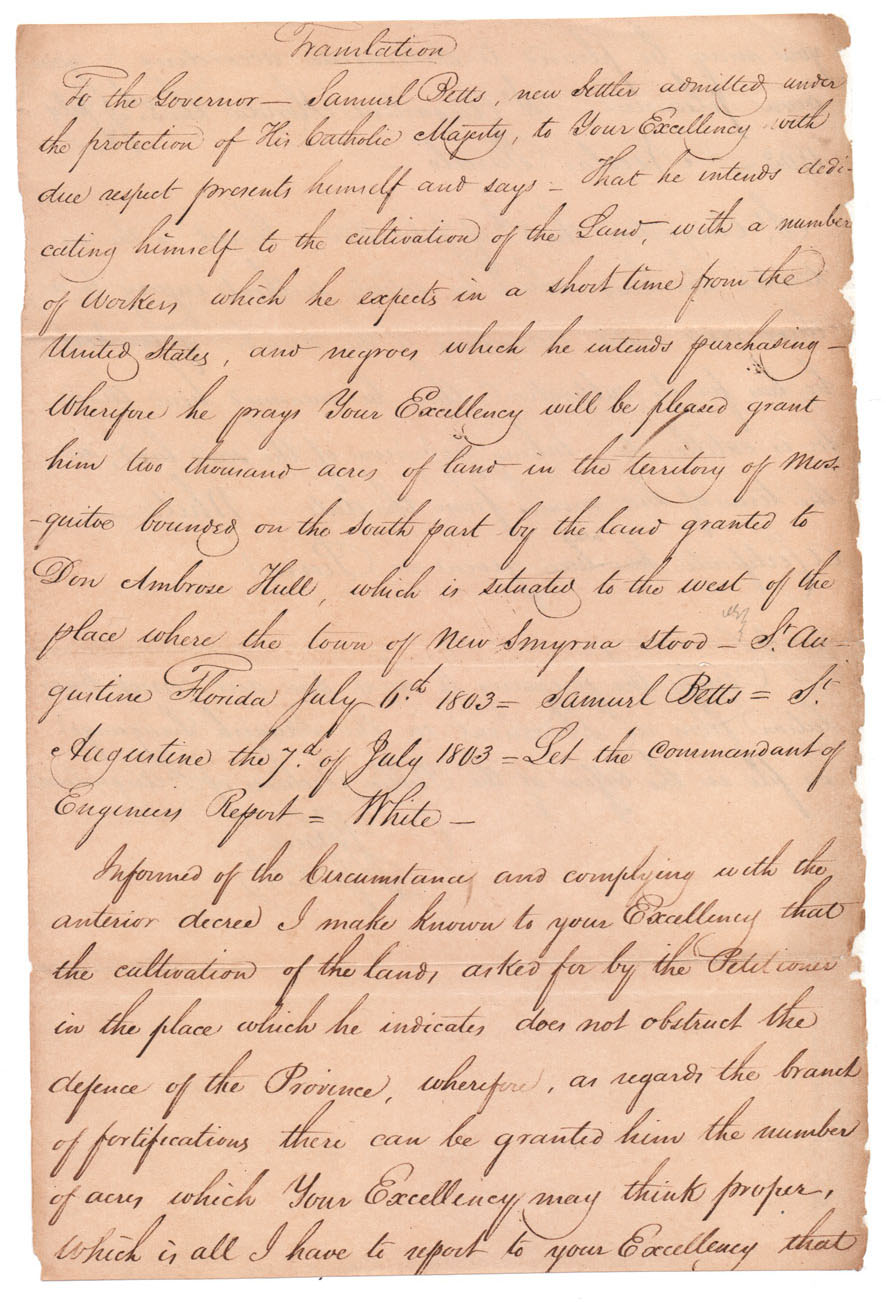 Translation
To the Governor — Samuel Betts, new Settler admitted under
the protection of His Catholic Majesty, to Your Excellency with
due respect presents himself and says — That he intends dedi-
cating himself to the cultivation of the Land, with a number
of Workers which he expects in a short time from the
United States, and negroes which he intends purchasing —
Wherefore he prays Your Excellency will be pleased grant
him two thousand acres of land in the territory of Mos-
-quitoe bounded on the South part by the land granted to
Don Ambrose Hull, which is situated to the west of the
place where the town of New Smyrna stood — St. Au-
gustine Florida July 6.th 1803 = Samuel Betts = St.
Augustine the 7.th of July 1803 = Let the Commandant of
Engineers Report = White —
Informed of the Circumstances and complying with the
anterior decree I make known to your Excellency that
the cultivation of the lands asked for by the Petitioner
in the place which he indicates does not obstruct the
defence of the Province, wherefore, as regards the branch
of fortifications there can be granted him the number
of acres which Your Excellency may think proper,
which is all I have to report to your Excellency that